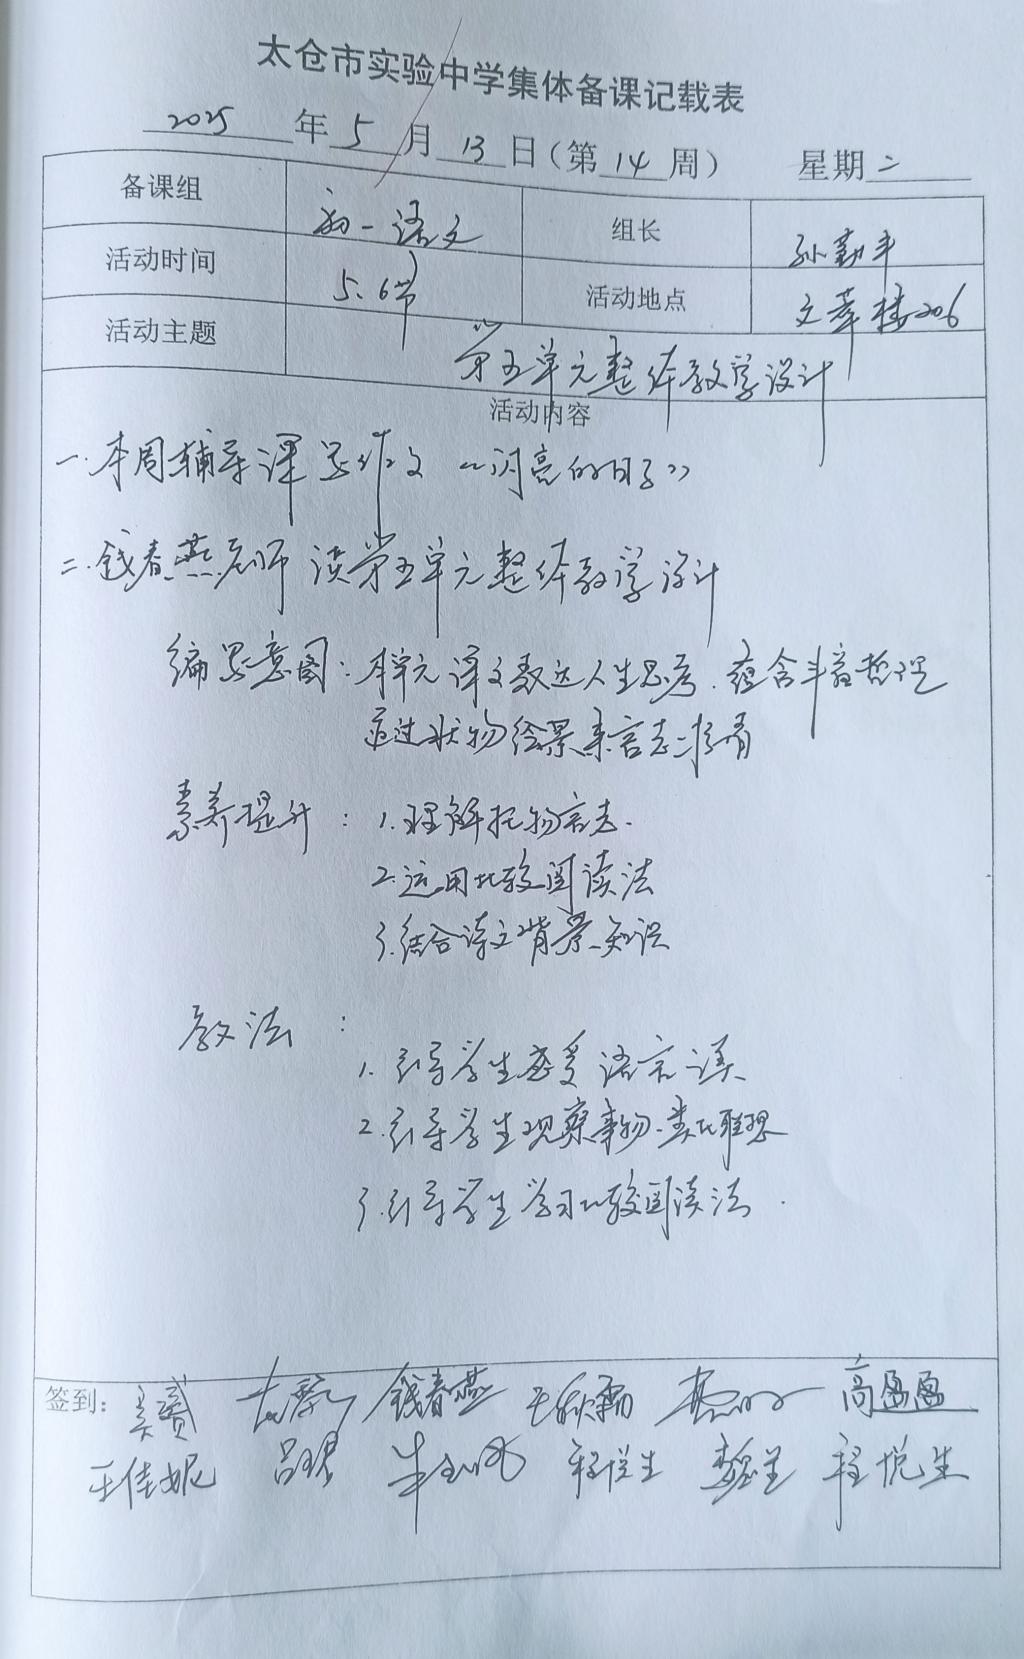 太仓市实验中学集体备课记载表
2025年5月13日(第14周) 星期二
备课组 初一语文 组长 孙勤丰
活动时间 5.6节 活动地点 文萃楼206
活动主题 第五单元整体教学设计
活动内容
一.本周辅导课写作文“闪亮的日子”
二.钱春燕老师读第五单元整体教学设计
编写意图:本单元课文表达人生思考.蕴含丰富哲理
通过状物绘景来言志抒情
素养提升:1.理解托物言志.
2.运用比较阅读法
3.结合诗文背景知识
教法:
1.引导学生感受语言美
2.引导学生观察事物.类比联想
3.引导学生学习比较阅读法.
签到: 钱春燕 王秋霜 高盈盈
王佳妮 吕珺 程悦生 程悦生